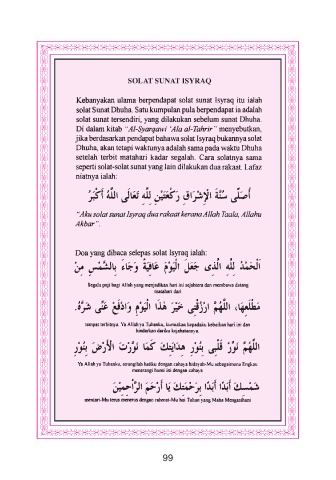 SOLAT SUNAT ISYRAQ
Kebanyakan ulama berpendapat solat sunat Isyraq itu ialah
solat Sunat Dhuha. Satu kumpulan pula berpendapat ia adalah
solat sunat tersendiri, yang dilakukan sebelum sunat Dhuha.
Di dalam kitab "Al-Syarqawi 'Ala al-Tahrir" menyebutkan,
jika berdasarkan pendapat bahawa solat Isyraq bukannya solat
Dhuha, akan tetapi waktunya adalah sama pada waktu Dhuha
setelah terbit matahari kadar segalah. Cara solatnya sama
seperti solat-solat sunat yang lain dilakukan dua rakaat. Lafaz
niatnya ialah:
أُصَلِّى سُنَّةَ الْإِشْرَاقِ رَكْعَتَيْنِ لِلَّهِ تَعَالَى اللَّهُ أَكْبَرُ
"Aku solat sunat Isyraq dua rakaat kerana Allah Taala, Allahu
Akbar".
Doa yang dibaca selepas solat Isyraq ialah:
اَلْحَمْدُ لِلَّهِ الَّذِى جَعَلَ الْيَوْمَ عَافِيَةً وَجَاءَ بِالشَّمْسِ مِنْ
Segala puji bagi Allah yang menjadikan hari ini sejahtera dan membawa datang
matahari dari
مَطْلَعِهَا، اللَّهُمَّ ارْزُقْنِى خَيْرَ هَذَا الْيَوْمِ وَادْفَعْ عَنِّى شَرَّهُ.
tempat terbitnya. Ya Allah ya Tuhanku, kurniakan kepadaku kebaikan hari ini dan
hindarkan dariku kejahatannya.
اللَّهُمَّ نَوِّرْ قَلْبِى بِنُورِ هِدَايَتِكَ كَمَا نَوَّرْتَ الْأَرْضَ بِنُورِ
Ya Allah ya Tuhanku, terangilah hatiku dengan cahaya hidayah-Mu sebagaimana Engkau
menerangi bumi ini dengan cahaya
شَمْسِكَ أَبَدًا أَبَدًا بِرَحْمَتِكَ يَا أَرْحَمَ الرَّاحِمِيْنَ
mentari-Mu terus menerus dengan rahmat-Mu hai Tuhan yang Maha Mengasihani
99